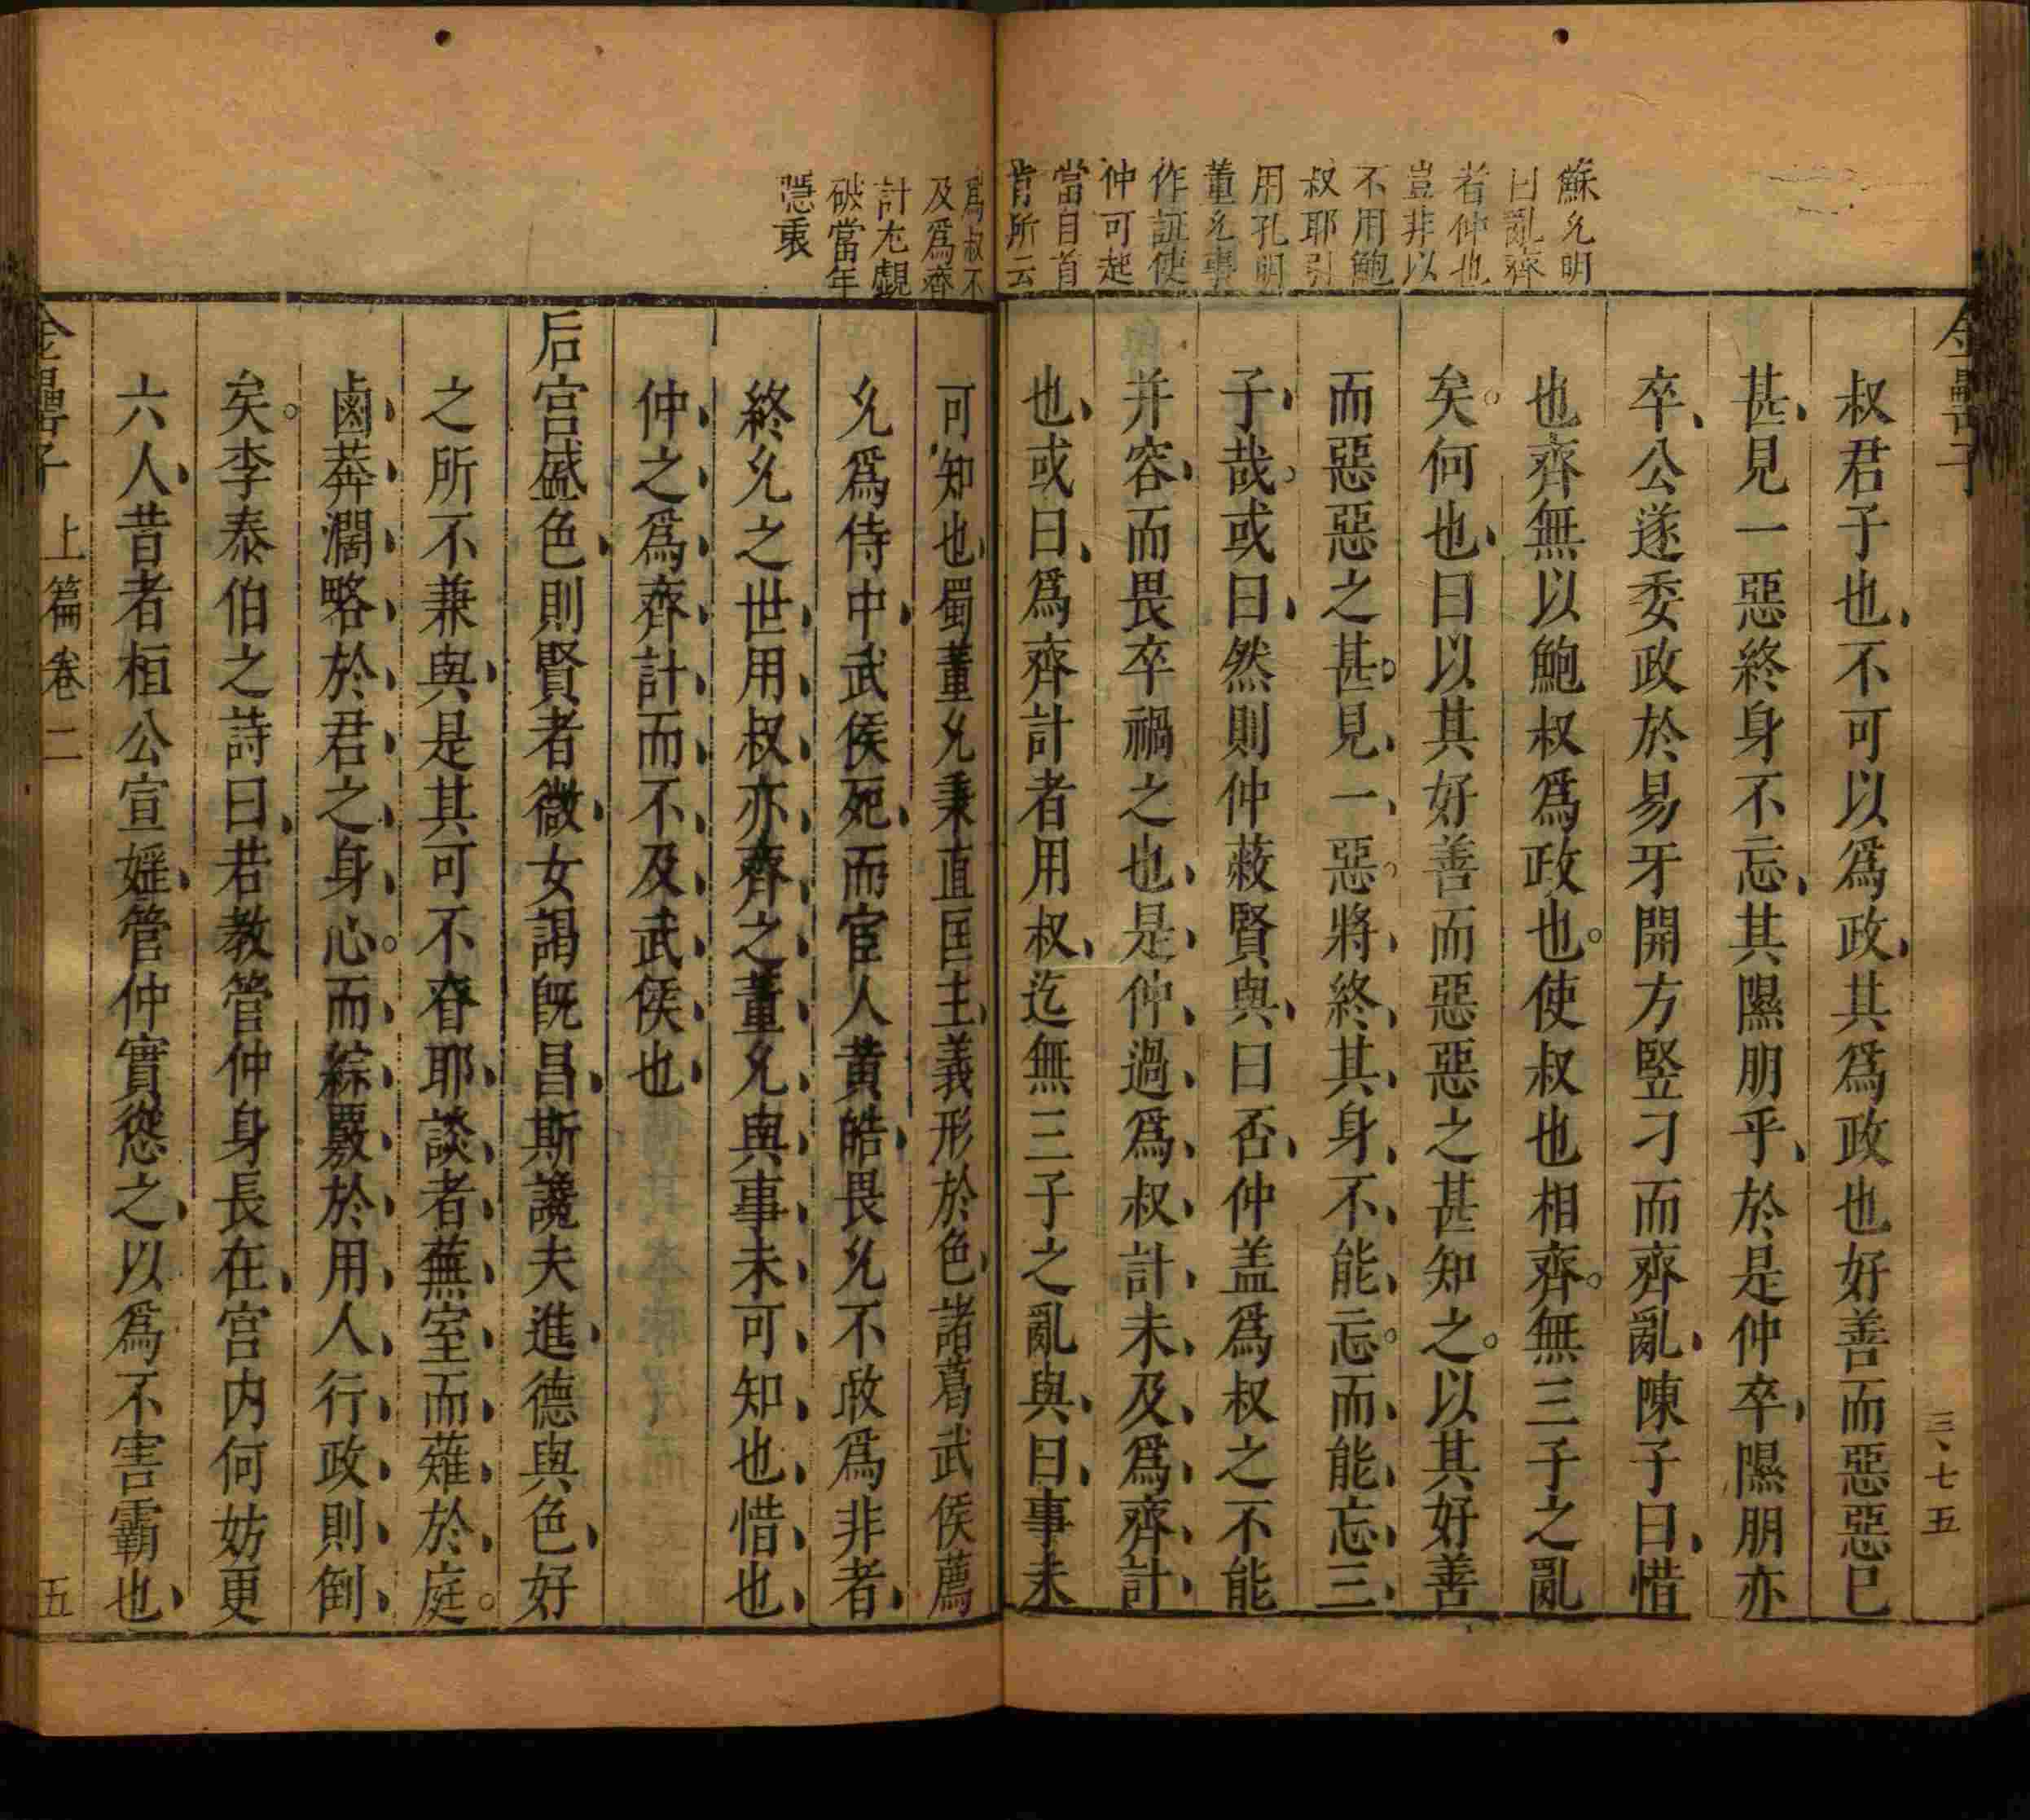 蘇允明
曰亂齊
者仲也
豈非以
不用鮑
叔耶引
用孔明
董允事
作証使
仲可起
當自首
肯所云
爲叔不
及爲齊
計尢覷
破當年
隱衷
三、七五
叔君子也、不可以爲政、其爲政也好善而惡惡已
甚、見一惡終身不忘、其隰朋乎、於是仲卒、隰朋亦
卒、公遂委政於易牙開方竪刁而齊亂、陳子曰、惜
也齊無以鮑叔爲政也。使叔也相齊。無三子之亂
矣。何也、曰以其好善而惡惡之甚知之。以其好善
而惡惡之甚。見、一、惡。將、終、其、身、不、能、忘。而、能、忘、三、
子、哉。或曰、然則仲蔽賢與、曰否、仲盖爲叔之不能
并容、而畏卒禍之也、是、仲、過、爲、叔、計、未、及、爲、齊、計、
也、或曰、爲齊計者用叔、迄無三子之亂與、曰、事未
可知也、蜀董允秉直匡主、義形於色、諸葛武侯薦
允爲侍中、武侯死、而宦人黃皓、畏允不敢爲非者、
終允之世、用、叔、亦、齊、之、董、允、與、事、未、可、知、也、惜、也、
仲、之、爲、齊、計、而、不、及、武、侯、也、
后宮盛色、則賢者微、女謁旣昌、斯讒夫進、德與色、好
之所不兼與、是其可不眘耶、談、者、蕪、室、而、薙、於、庭。
鹵、莽、濶、略、於、君、之、身、心。而、綜、覈、於、用、人、行、政、則、倒、
矣。李泰伯之詩曰、若教管仲身長在、宮内何妨更
六人、昔者桓公宣婬、管仲實慫之、以爲不害霸也、
金罍子 上篇卷二 五